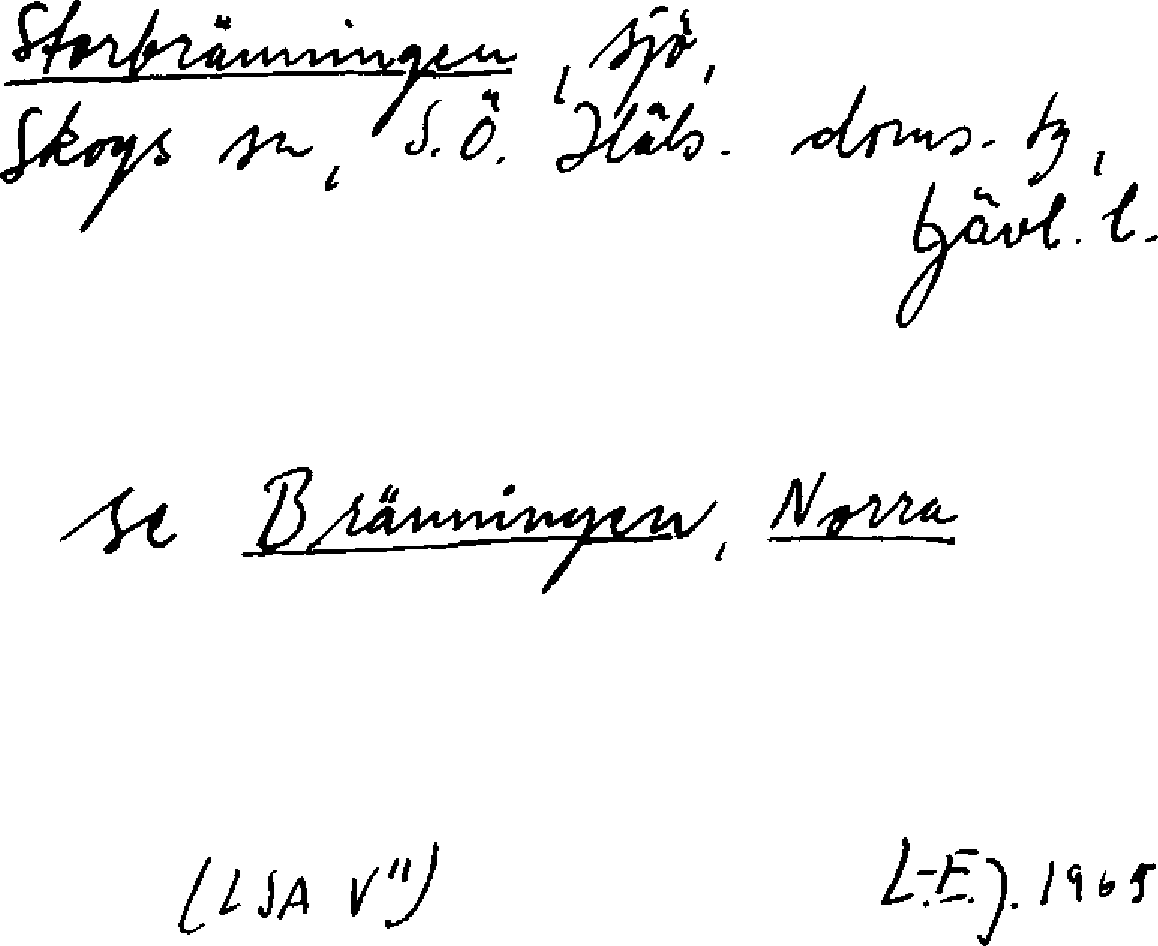 Storbränningen, sjö,
Skogs sn, S.Ö. Häls. doms. tg,
Gävl. l.
se Bränningen, Norra
(LSA V")
L.-E.J. 1965